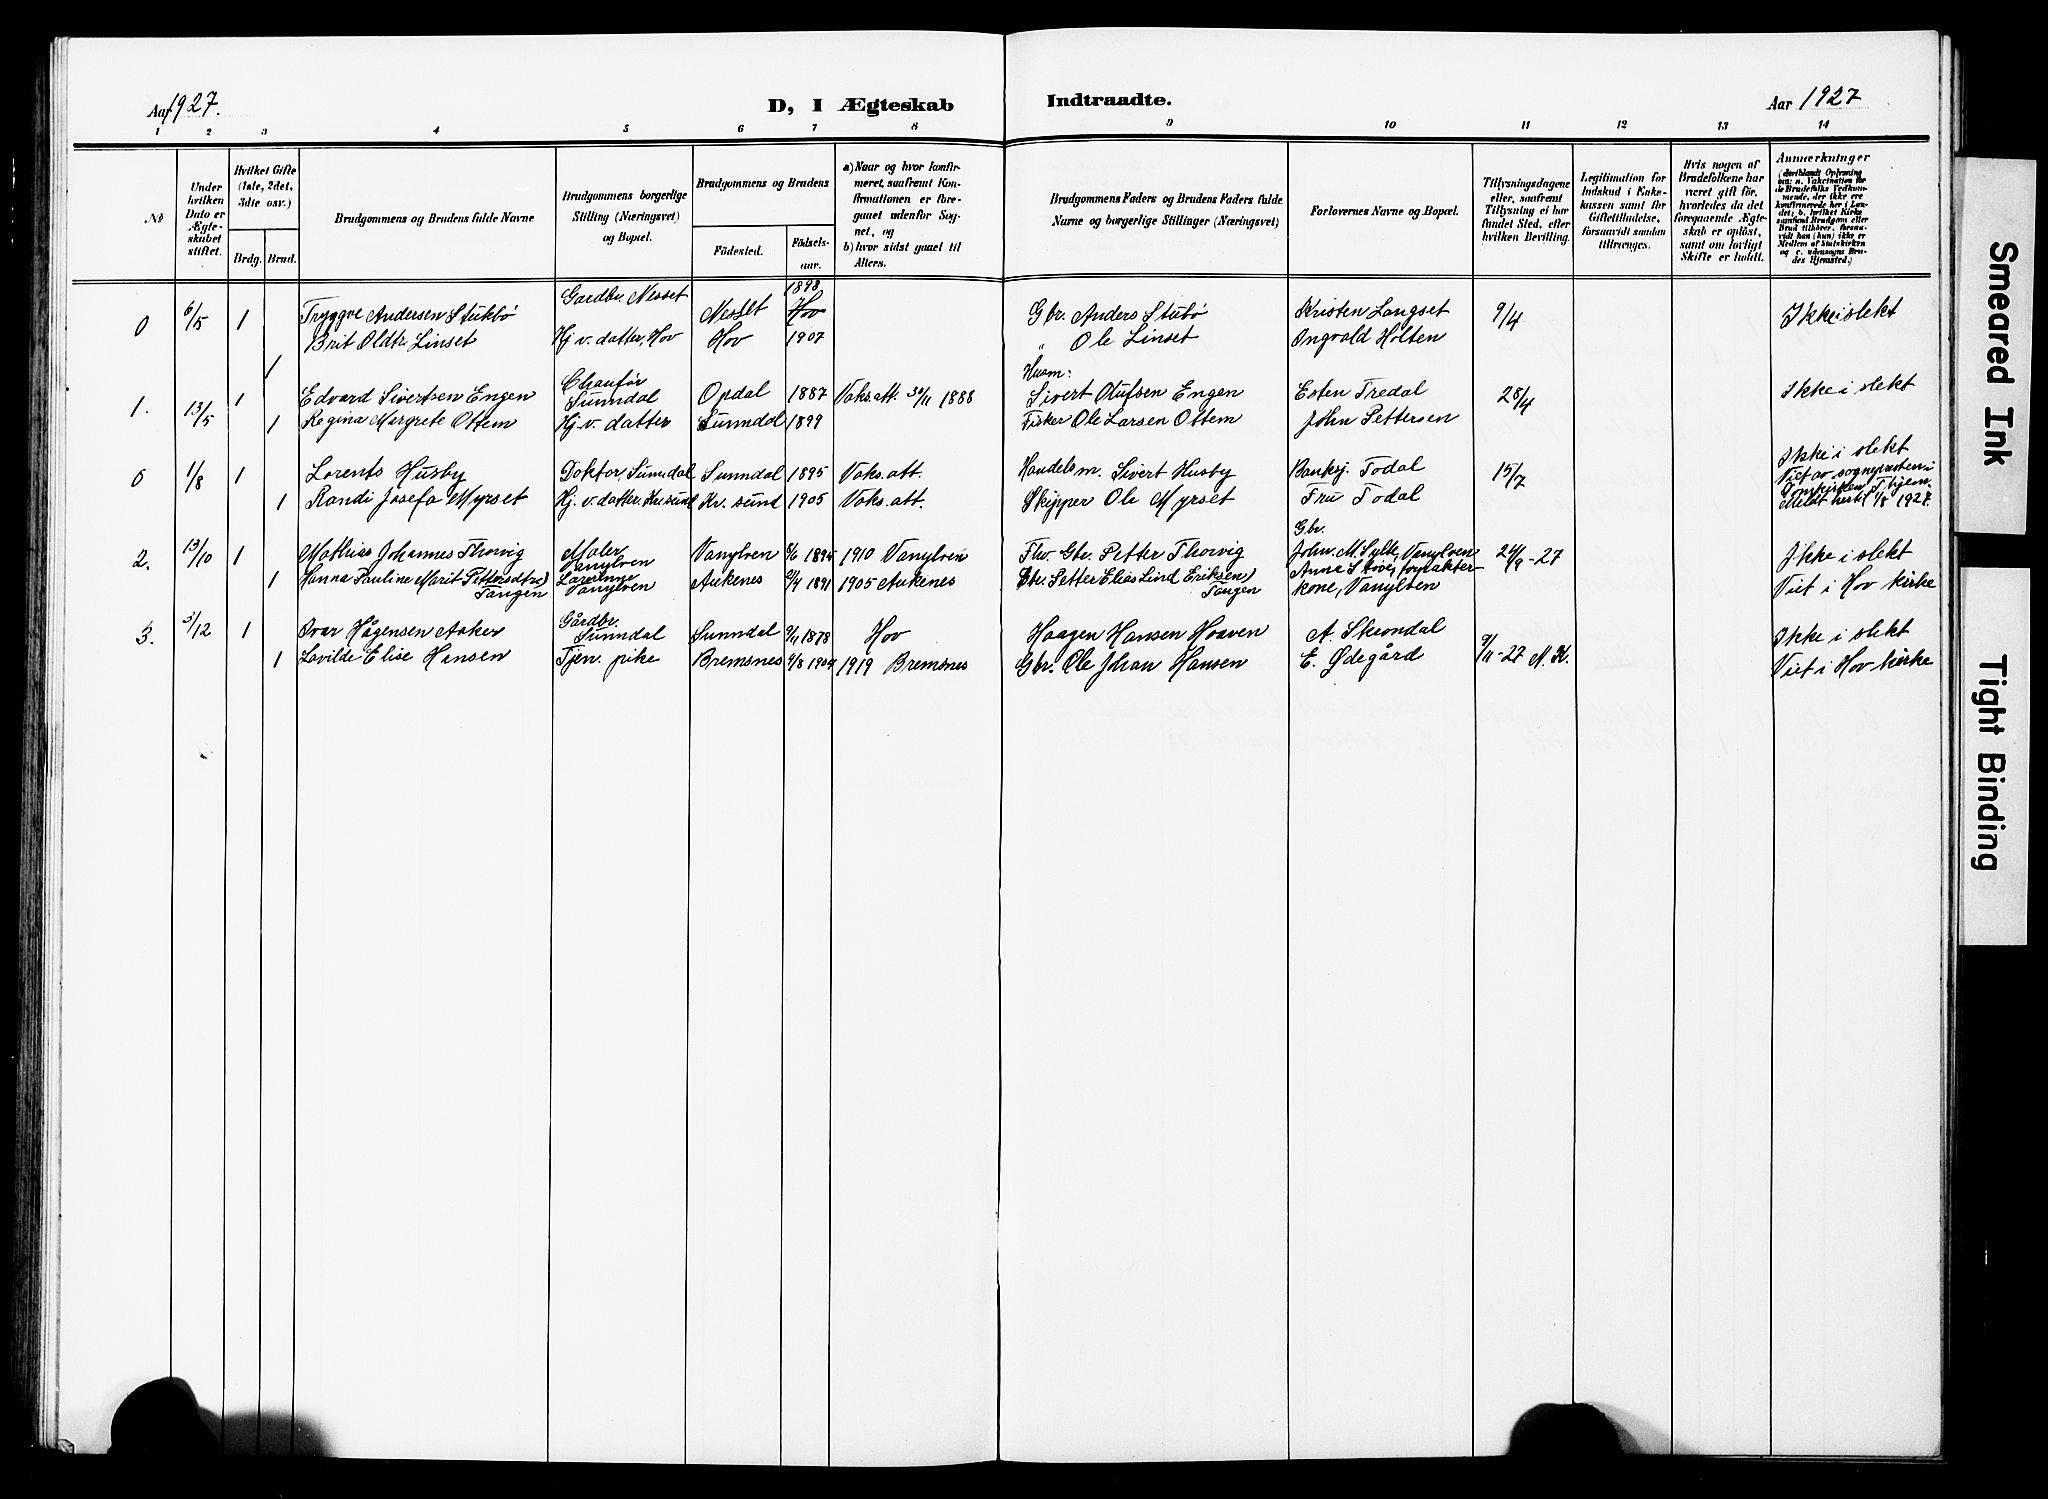 Aar 1927.
D, I Ægteskab Indtraadte.
Aar 1927
1 2 3 4 5 6 7 8 9 10 11 12 13 14
No
Under hvilken Dato er Ægteskabet stiftet.
Hvilket Gifte (1ste, 2det, 3dte osv.)
Brdg. Brud.
Brudgommens og Brudens fulde Navne
Brudgommens borgerlige Stilling (Næringsvei) og Bopæl.
Brudgommens og Brudens
Födested.
Födselsaar.
a) Naar og hvor konfirmeret, saafremt Konfirmationen er foregaaet udenfor Sognet, og
b) hvor sidst gaaet til Alters.
Brudgommens Faders og Brudens Faders fulde Navne og borgerlige Stillinger (Næringsvei)
Forlovernes Navne og Bopæl.
Tillysningsdagene eller, saafremt Tillysning ei har fundet Sted, efter hvilken Bevilling.
Legitimation for Indskud i Enkekassen samt for Giftetilladelse, forsaavidt saadan tiltrænges.
Hvis nogen af Brudefolkene har været gift för, hvorledes da det foregaaende Ægteskab er oplöst, samt om lovligt Skifte er holdt.
Anmærkninger
(deriblandt Oplysning om: a. Vakcination for de Brudefolks Vedkommende, der ikke ere konfirmerede her i Landet; b. hvilket Kirkesamfund Brudgom eller Brud tilhörer, forsaavidt han (hun) ikke er Medlem af Statskirken og c. udensogns Brudes Hjemsted.)
0 6/5 1 Tryggve Andersen Stubbø Gardbr. Nesset Nesset 1898 Hov Gbr. Anders Stubø Kristen Langset 9/4 Ikke i slekt
1 Brit Oldtr Linset Hj v. datter, Hov Hov 1907 " Ole Linset Ingvald Holten
1. 13/5 1 Edvard Sivertsen Engen Chaufør Sunndal Opdal 1887 Vaks. att. 30/11 1888 Husm: Sivert Olufsen Engen Esten Fredal 28/4 Ikke i slekt
1 Regina Margrete Ottem Hj. v. datter Sunndal 1899 Fisker Ole Larsen Ottem John Pettersen
0 1/8 1 Lorents Husby Doktor, Sunndal Sunndal 1895 Vaks. att. Handelsm. Sivert Husby Banksj. Todal 15/7 Ikke i slekt
1 Randi Josefa Myrset Hj. v. datter, Kr.sund Kr. sund 1905 Vaks. att. Skipper Ole Myrset Fru Todal Viet av sognepresten i Domkirken, T.hjem. Meldt hertil 1/8 1927.
2. 13/10 1 Mathias Johannes Thorvig Maler Vanylven Vanylven 8/6 1895 1910 Vanylven Fhv. Gbr. Petter Thorvig Gbr. John. M. Sylte, Vanylven 24/9-27 Ikke i slekt
1 Hanna Pauline Marit Pettersdtr. Tangen Lærerinne Vanylven Aukenes 9/4 1891 1905 Aukenes Petter Elias Lund Eriksen Tangen Anna Skove, forpakterkone, Vanylven Viet i Hov kirke
3. 3/12 1 Ivar Hågensen Aaker Gårdbr. Sunndal Sunndal 9/11 1878 Hov Haagen Hansen Hoaven A. Skrondal 9/11-27 N. K. Ikke i slekt
1 Lavilde Elise Hansen Tjen. pike Bremsnes 4/8 1904 1919 Bremsnes Gbr. Ole Johan Hansen E. Ødegård Viet i Hov kirke
Smeared Ink
Tight Binding